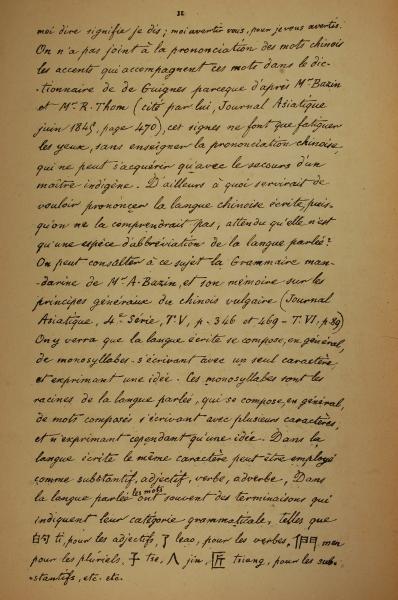 II
moi dire signifie je dis; moi avertir vous, pour je vous avertis.
On n'a pas joint à la prononciation des mots chinois
les accents qui accompagnent ces mots dans le dic-
-tionnaire de de Guignes parceque d'après Mr Bazin
et Mr. R. Thom (cité par lui, Journal Asiatique
juin 1845, page 470), ces signes ne font que fatiguer
les yeux, sans enseigner la prononciation chinoise,
qui ne peut s'acquérir qu'avec le secours d'un
maître indigène. D'ailleurs à quoi servirait de
vouloir prononcer la langue chinoise écrite, puis-
qu'on ne la comprendrait pas, attendu qu'elle n'est
qu'une espèce d'abbréviation de la langue parlée?
On peut consulter à ce sujet la Grammaire man-
darine de Mr A. Bazin, et son mémoire sur les
principes généraux du chinois vulgaire (Journal
Asiatique, 4e Série, T. V, p. 346 et 469 - T. VI. p. 89)
On y verra que la langue écrite se compose, en général,
de monosyllabes s'écrivant avec un seul caractère
et exprimant une idée. Ces monosyllabes sont les
racines de la langue parlée, qui se compose, en général,
de mots composés s'écrivant avec plusieurs caractères,
et n'exprimant cependant qu'une idée. Dans la
langue écrite le même caractère peut être employé
comme substantif, adjectif, verbe, adverbe. Dans
la langue parlée les mots ont souvent des terminaisons qui
indiquent leur catégorie grammaticale, telles que
的 ti, pour les adjectifs, 了 leao, pour les verbes, 們 men
pour les pluriels, 子 tse, 人 jin, 匠 tsiang, pour les sub-
-stantifs, etc. etc.